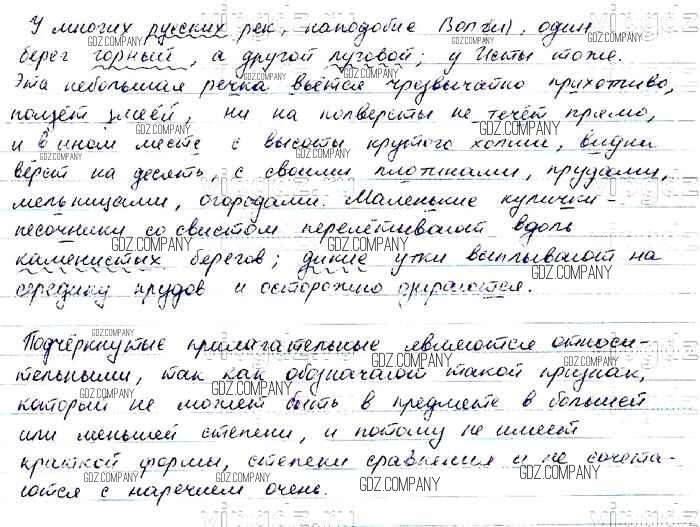 У многих русских рек, наподобие Волги, один
берег горный, а другой луговой; у Исты тоже.
Эта небольшая речка вьётся чрезвычайно прихотливо,
ползёт змеёй, ни на полверсты не течёт прямо,
и в ином месте с высоты крутого холма, видна
вёрст на десять, с своими плотинами, прудами,
мельницами, огородами. Маленькие кулички-
песочники со свистом перелётывают вдоль
каменистых берегов; дикие утки выплывают на
середину прудов и осторожно озираются.
Подчёркнутые прилагательные являются относи-
тельными, так как обозначают такой признак,
который не может быть в предмете в большей
или меньшей степени, и потому не имеет
краткой формы, степени сравнения и не сочета-
ются с наречием очень.